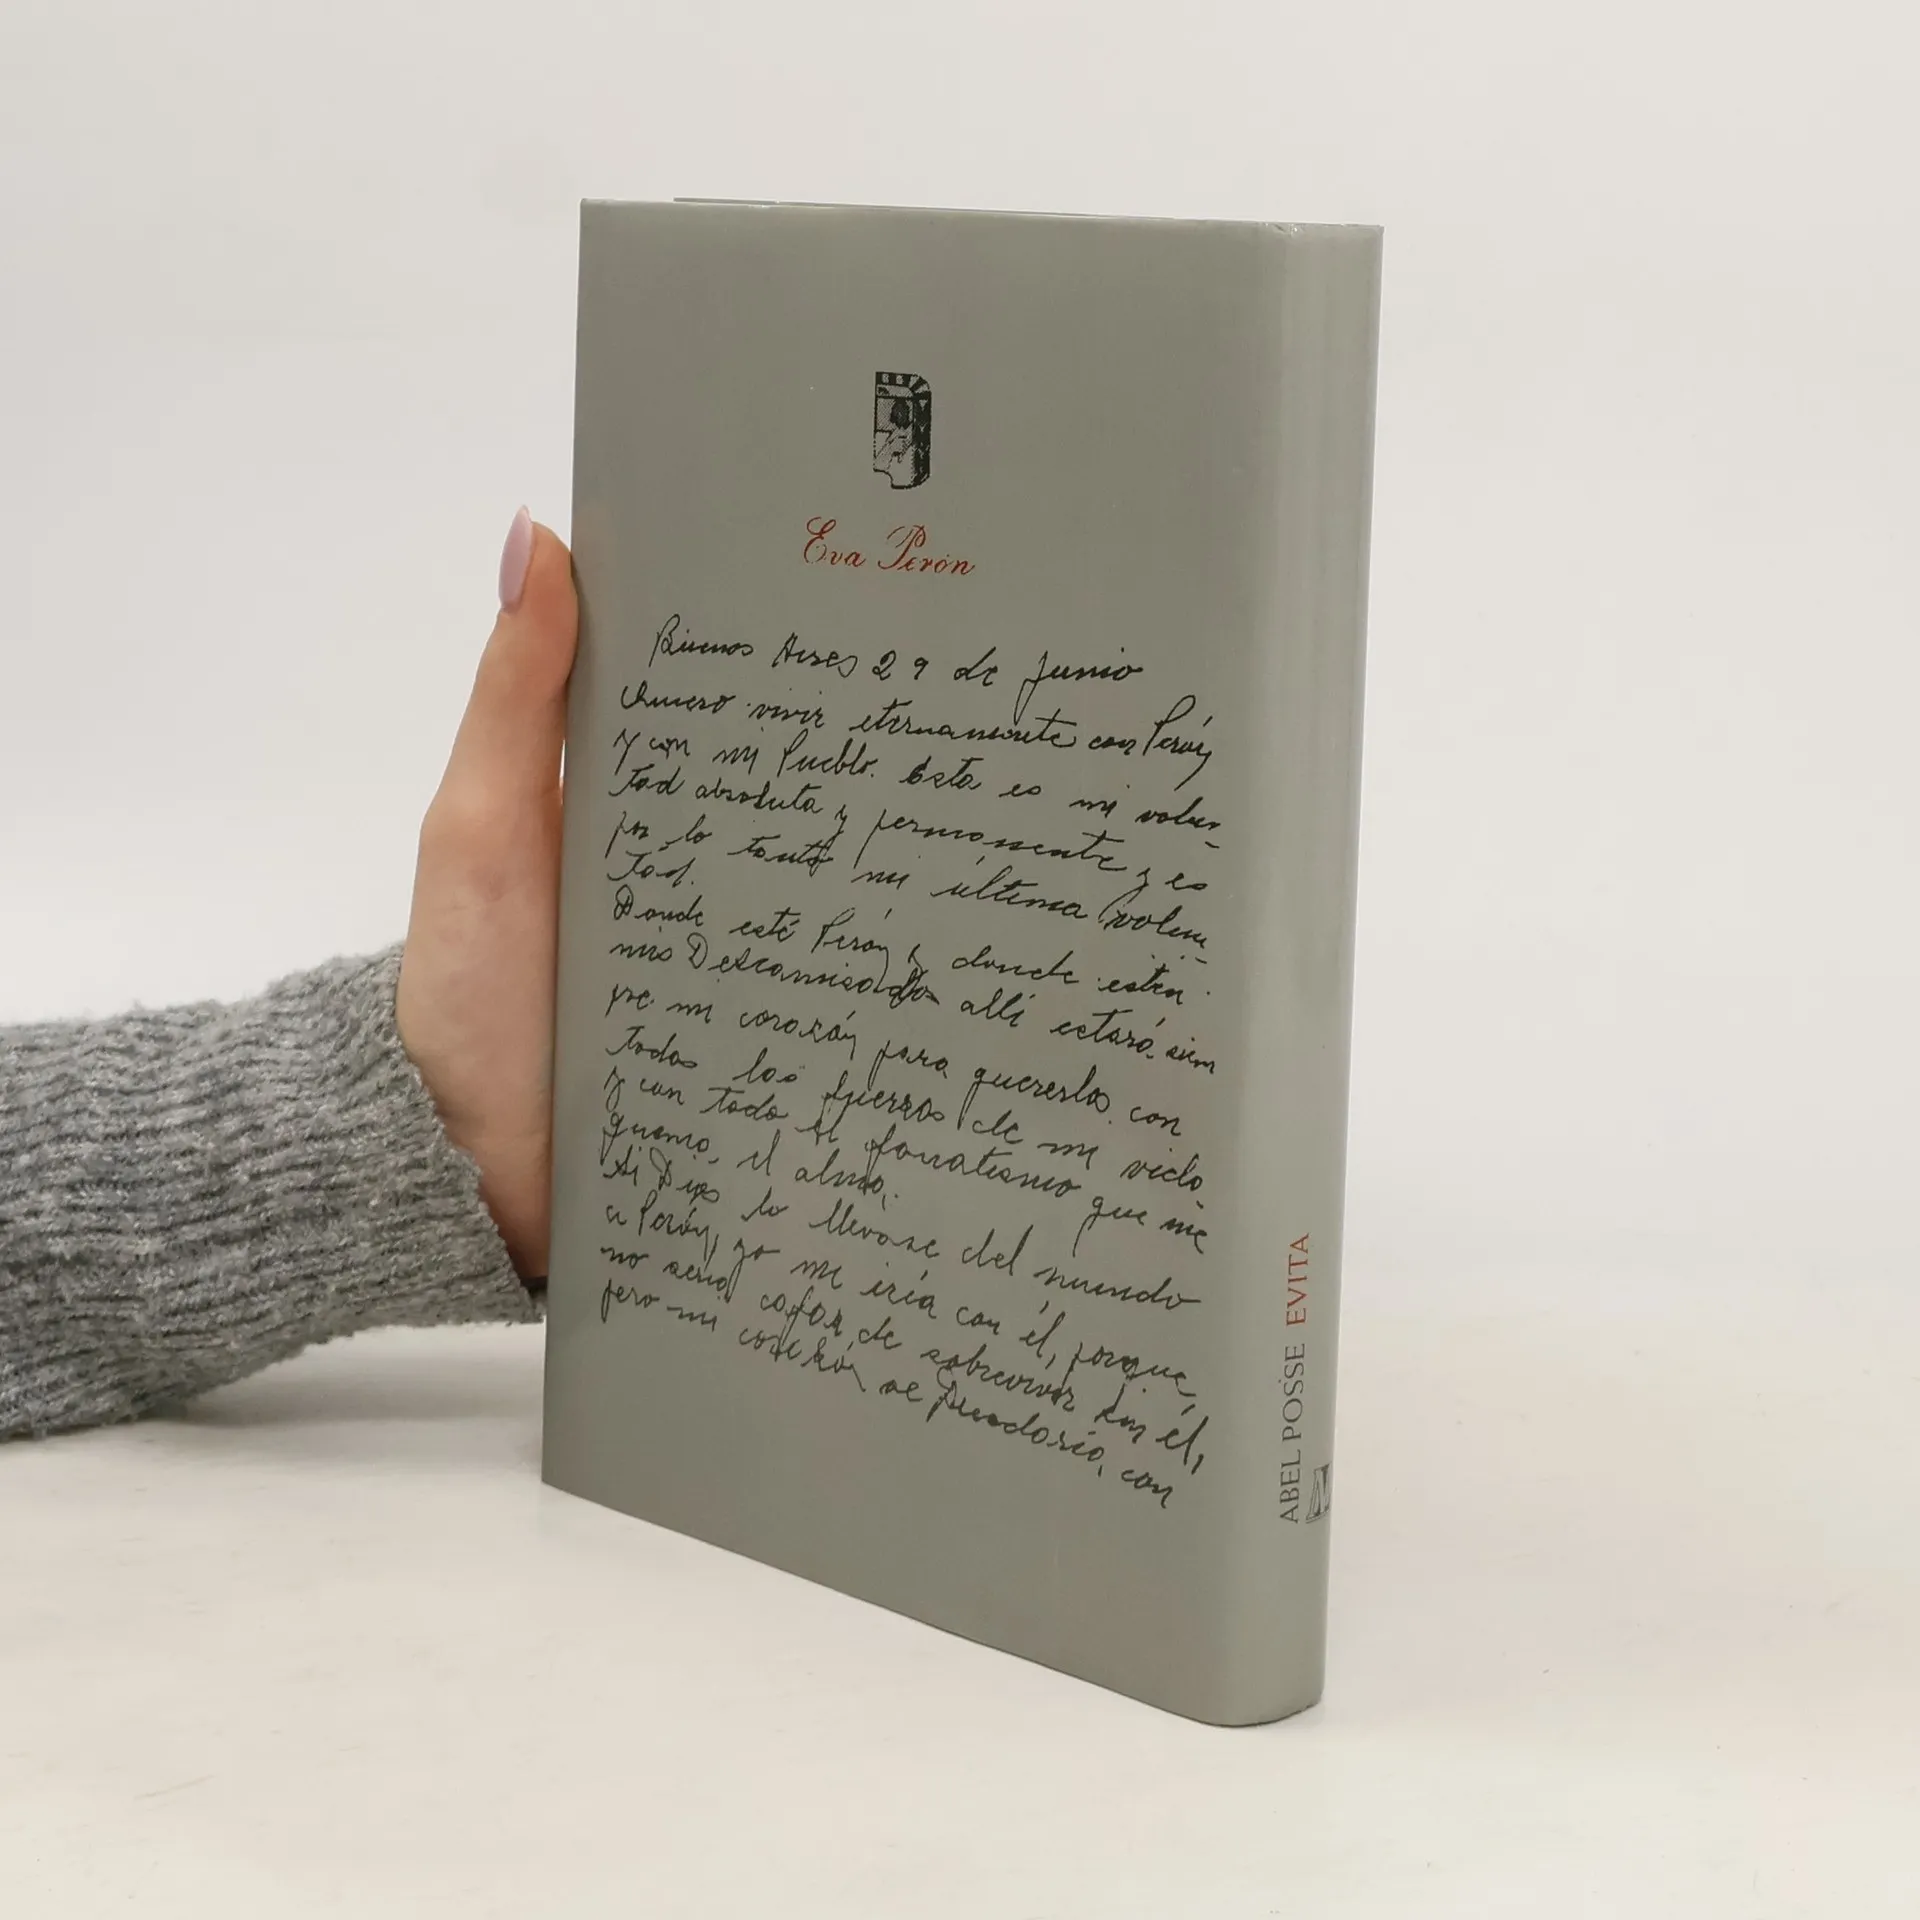 Eva Perón
Buenos Aires 29 de Junio
Quiero vivir eternamente con Perón
y con mi Pueblo. Esta es mi volun-
tad absoluta y permanente y es
por lo tanto mi última volun-
tad.
Donde esté Perón y donde estén
mis Descamisados allí estará siem
pre mi corazón para quererlos con
todas las fuerzas de mi vida
y con todo el fanatismo que me
quema el alma.
Si Dios lo llevase del mundo
a Perón, yo me iría con él, porque
no sería capaz de sobrevivir sin él,
pero mi corazón se quedaría, con
ABEL POSSE EVITA